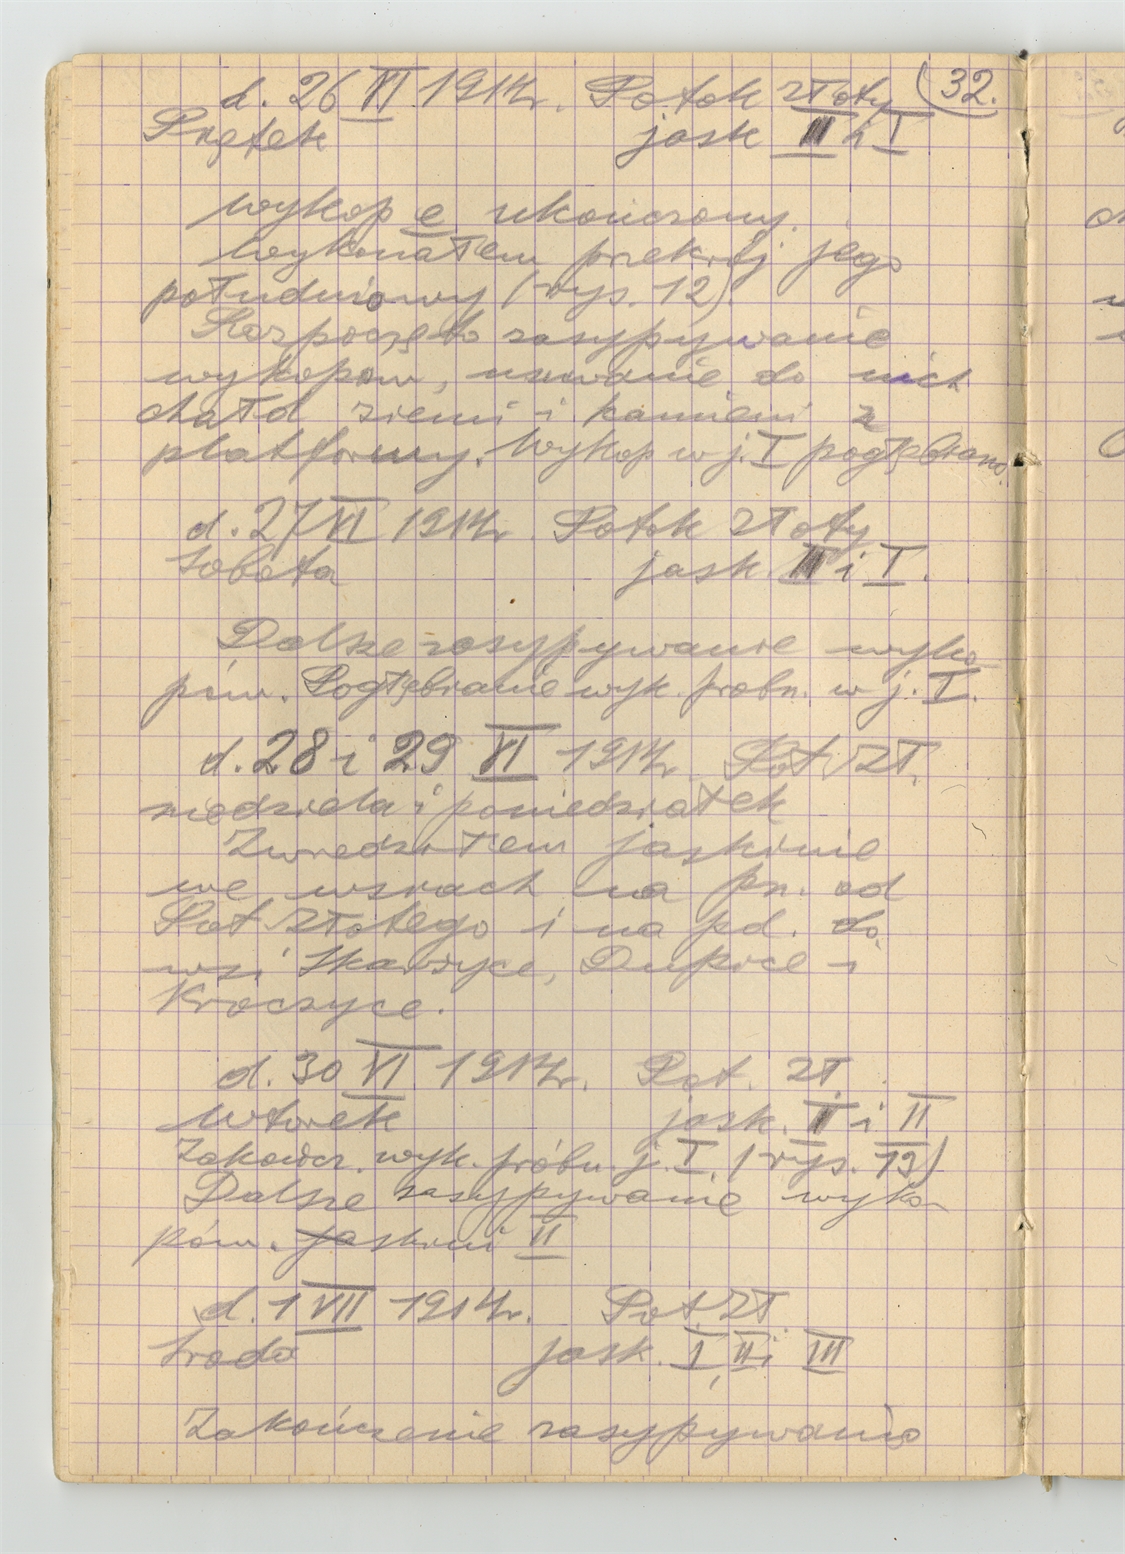 32.
d. 26 VI 1914r. Potok złoty
Piątek jask II i I
Wykop e ukończony.
Wykonałem przekrój jego
południowy (rys. 12).
Rozpoczęto zasypywanie
wykopów, usuwanie do nich
hałd ziemi i kamieni z
platformy. Wykop w j. I pogłębiano.
d. 27 VI 1914r. Potok Złoty
Sobota jask. II i I.
Dalsze zasypywanie wyko-
pów. Pogłębianie wyk. próbn. w j. I.
d. 28 i 29 VI 1914r. Pot. Zł.
niedziela i poniedziałek
Zwiedziłem jaskinie
we wsiach na pn. od
Pot. Złotego i na pd. do
wsi Skarżyce, Dupice i
Kroczyce.
d. 30 VI 1914r. Pot. Zł.
Wtorek jask. I i II
Zakończ. wyk. próbn. j. I. (rys. 13)
Dalsze zasypywanie wyko-
pów. jaskini II
d. 1 VII 1914r. Pot. Zł.
Środa jask. I, II i III
Zakończenie zasypywania